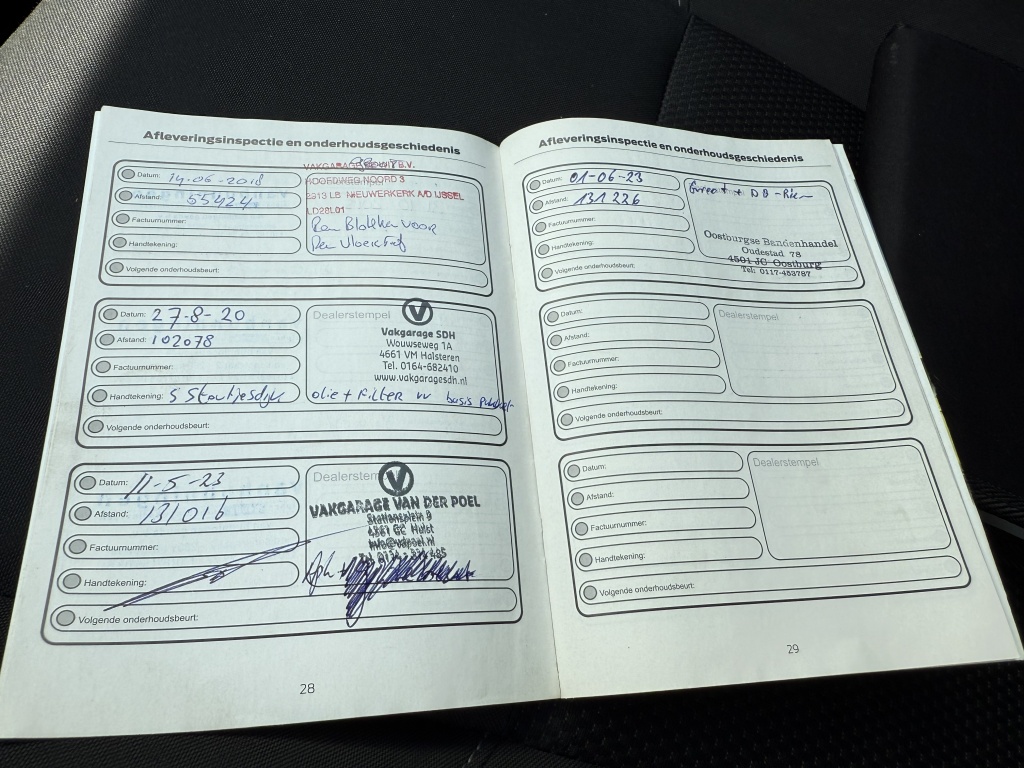 Afleveringsinspectie en onderhoudsgeschiedenis
Datum: 14-06-2018
Afstand: 55424
Factuurnummer:
Handtekening:
Volgende onderhoudsbeurt:
VAKGARAGE B.V.
HOOFDWEG NOORD 3
2913 LB NIEUWERKERK A/D IJSSEL
Rem Blokken voor
Datum: 27-8-20
Afstand: 102078
Factuurnummer:
Handtekening: S Stoutjesdijk
Volgende onderhoudsbeurt:
Dealerstempel
Vakgarage SDH
Wouwseweg 1A
4661 VM Halsteren
Tel. 0164-682410
www.vakgaragesdh.nl
olie + Filter
Datum: 11-5-23
Afstand: 131016
Factuurnummer:
Handtekening:
Volgende onderhoudsbeurt:
Dealerstempel
VAKGARAGE VAN DER POEL
Stationsplein 9
4561 GC Hulst
28
Afleveringsinspectie en onderhoudsgeschiedenis
Datum: 01-06-23
Afstand: 131226
Factuurnummer:
Handtekening:
Volgende onderhoudsbeurt:
Oostburgse Bandenhandel
Oudestad 78
4501 JC Oostburg
Tel: 0117-453787
Datum:
Afstand:
Factuurnummer:
Handtekening:
Volgende onderhoudsbeurt:
Dealerstempel
Datum:
Afstand:
Factuurnummer:
Handtekening:
Volgende onderhoudsbeurt:
Dealerstempel
29